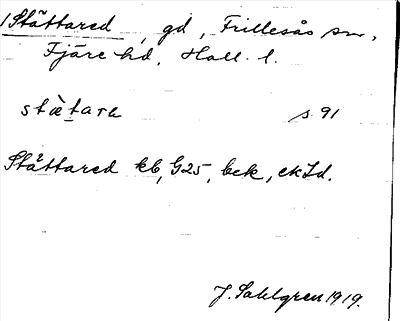 1 Stättared, gd, Frillesås sn,
Fjäre hd, Hall. l.
stæ̀tara s 91
Stättared kb, G25, bek, ekLd.
J. Sahlgren 1919.